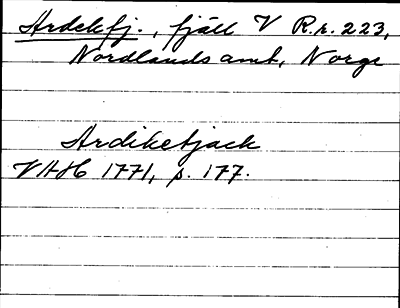 Ardekfj., fjäll V R.r. 223,
Nordlands amt, Norge
Ardiketjack
VHH 1771, s. 177.